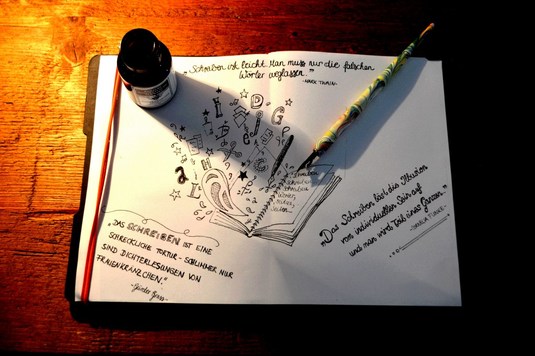 „Schreiben ist leicht. Man muss nur die falschen
Wörter weglassen."
- MARK TWAIN -
„DAS SCHREIBEN IST EINE
SCHRECKLICHE TORTUR - SCHLIMMER NUR
SIND DICHTERLESUNGEN VON
FRAUENKRÄNZCHEN."
- Günter Grass -
„Das Schreiben löst die Illusion
vom individuellen Sein auf
und man wird Teil eines Ganzen."